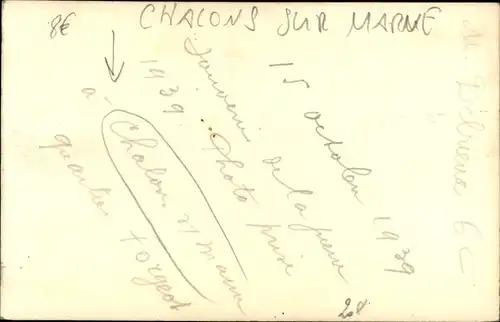 8€
CHALONS SUR MARNE
15 octobre 1939
Souvenir de la guerre
1939. Photo prise
à Chalons s/ Marne
quartier Forgeot
208